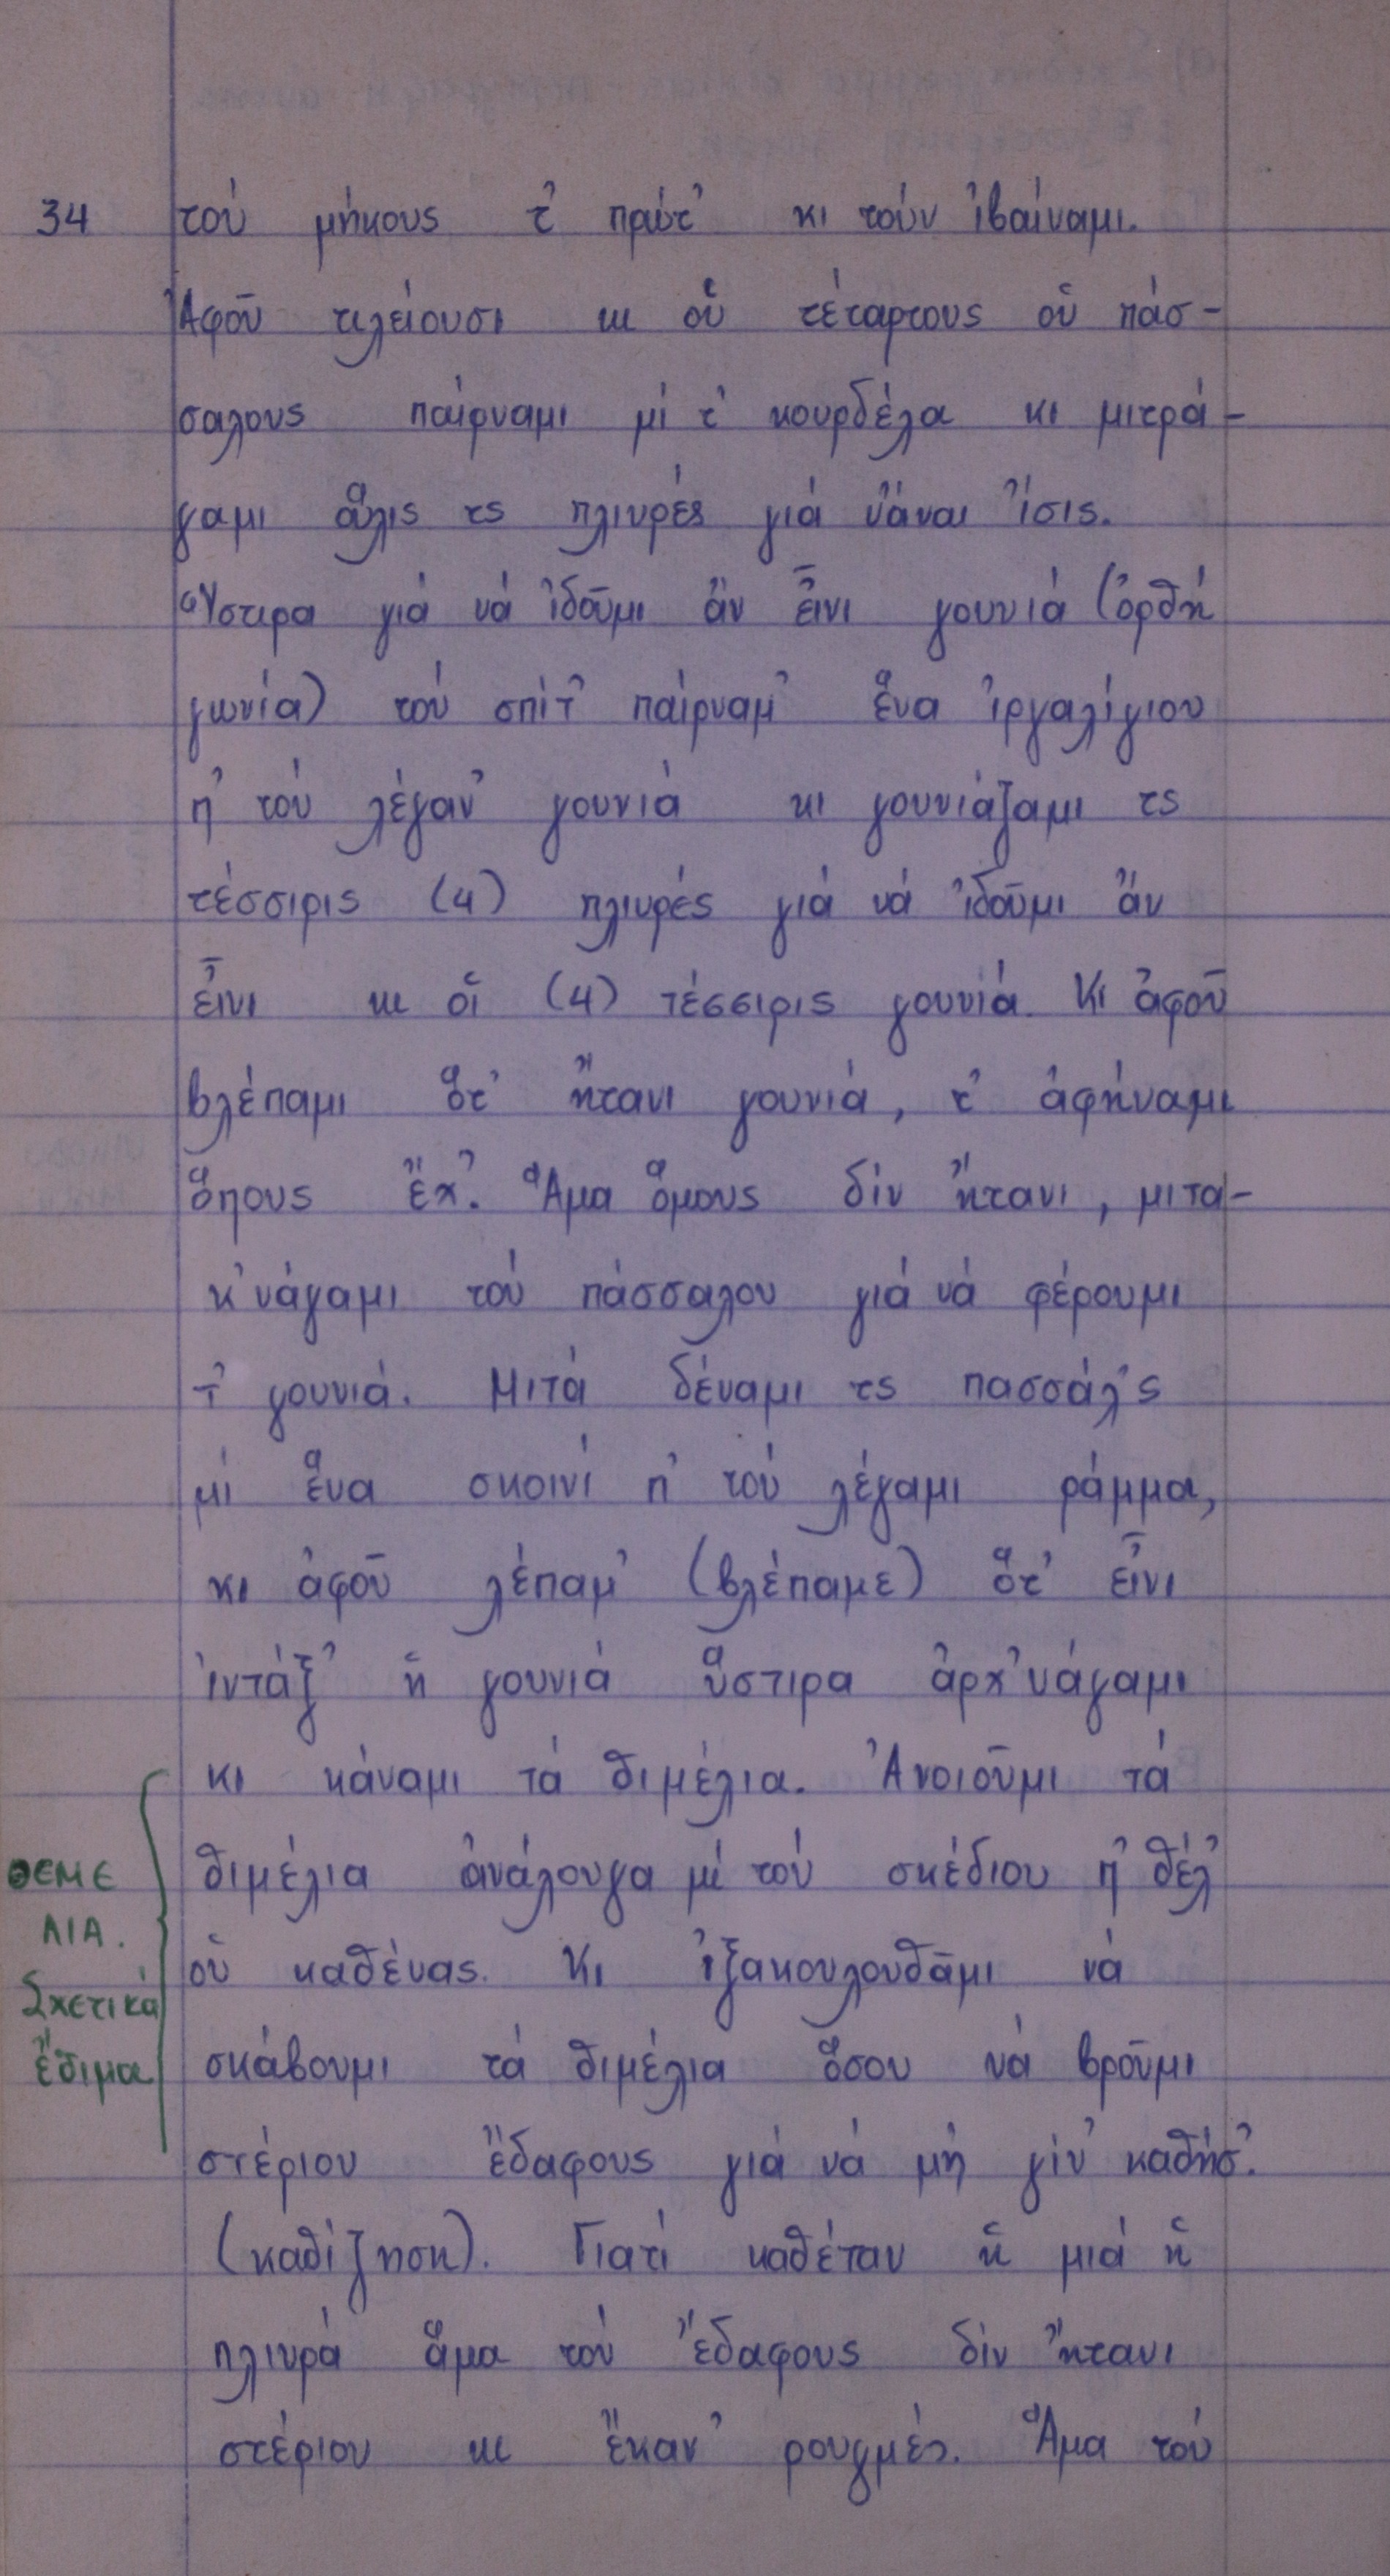 34 τού μήκους τ' πρώτ' κι τούν ἰβαίναμι.
Ἀφοῦ τιλείουσι κι οὑ τέταρτους οὑ πάσ-
σαλους παίρναμι μί τ' κουρδέλα κι μιτρά-
γαμι ὅλις τς πλιυρές γιά νἄναι ἴσις.
Ὕστιρα γιά νά ἰδοῦμι ἄν εἶνι γουνιά (ὀρθή
γωνία) τού σπίτ' παίρναμ' ἕνα ἰργαλίγιου
π' τού λέγαν' γουνιά κι γουνιάζαμι τς
τέσσιρις (4) πλιυρές γιά νά ἰδοῦμι ἄν
εἶνι κι οἱ (4) τέσσιρις γουνιά. Κι ἀφοῦ
βλέπαμι ὅτ' ἤτανι γουνιά, τ' ἀφήναμι
ὅπους ἔχ'. Ἅμα ὅμους δίν ἤτανι, μιτα-
κ'νάγαμι τού πάσσαλου γιά νά φέρουμι
τ' γουνιά. Μιτά δέναμι τς πασσάλ'ς
μί ἕνα σκοινί π' τού λέγαμι ράμμα,
κι ἀφοῦ λέπαμ' (βλέπαμε) ὅτ' εἶνι
ἰντάξ' ἡ γουνιά ὕστιρα ἀρχ'νάγαμι
κι κάναμι τά θιμέλια. Ἀνοιοῦμι τά
θιμέλια ἀνάλουγα μί τού σκέδιου π' θέλ'
οὑ καθένας. Κι ἰξακουλουθᾶμι νά
σκάβουμι τά θιμέλια ὅσου νά βροῦμι
στέριου ἔδαφους γιά νά μή γίν' καθήσ'.
(καθίζηση). Γιατί καθέταν ἡ μιά ἡ
πλιυρά ἅμα τού ἔδαφους δίν ἤτανι
στέριου κι ἔκαν' ρουγμές. Ἅμα τού
ΘΕΜΕ
ΛΙΑ.
Σχετικά
ἔθιμα